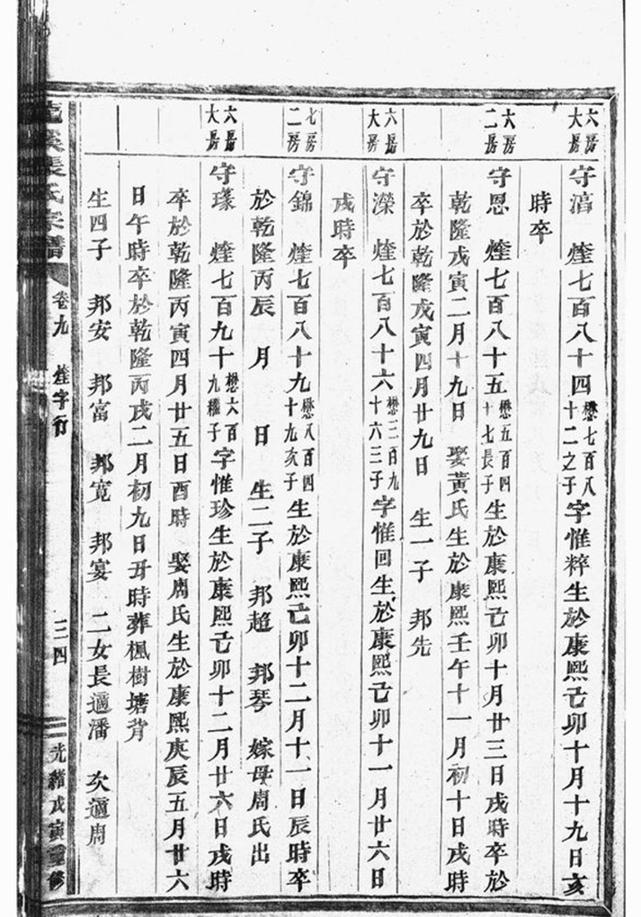 六房大房
守湻 煃七百八十四懋七百八十二之子字惟粹生於康熙己卯十月十九日亥
時卒
六房二房
守恩 煃七百八十五懋五百四十七長子生於康熙己卯十月廿三日戌時卒於
乾隆戊寅二月十九日 娶黃氏生於康熙壬午十一月初十日戌時
卒於乾隆戊寅四月廿九日 生一子 邦先
六房大房
守濚 煃七百八十六懋三百九十六三子字惟回生於康熙己卯十一月廿六日
戌時卒
七房二房
守錦 煃七百八十九懋八百四十九亥子生於康熙己卯十二月十一日辰時卒
於乾隆丙辰 月 日 生二子 邦超 邦琴 嫁母周氏出
六房大房
守瑑 煃七百九十懋六百九繼子字惟珍生於康熙己卯十二月廿六日戌時
卒於乾隆丙寅四月廿五日酉時 娶周氏生於康熙庚辰五月廿六
日午時卒於乾隆丙戌二月初九日丑時葬楓樹塘背
生四子 邦安 邦富 邦寛 邦宴 二女長適潘 次適周
張氏宗譜 卷九 煃字行 三四 光緒戊寅重修